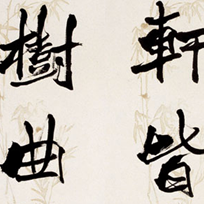 軒皆
樹曲